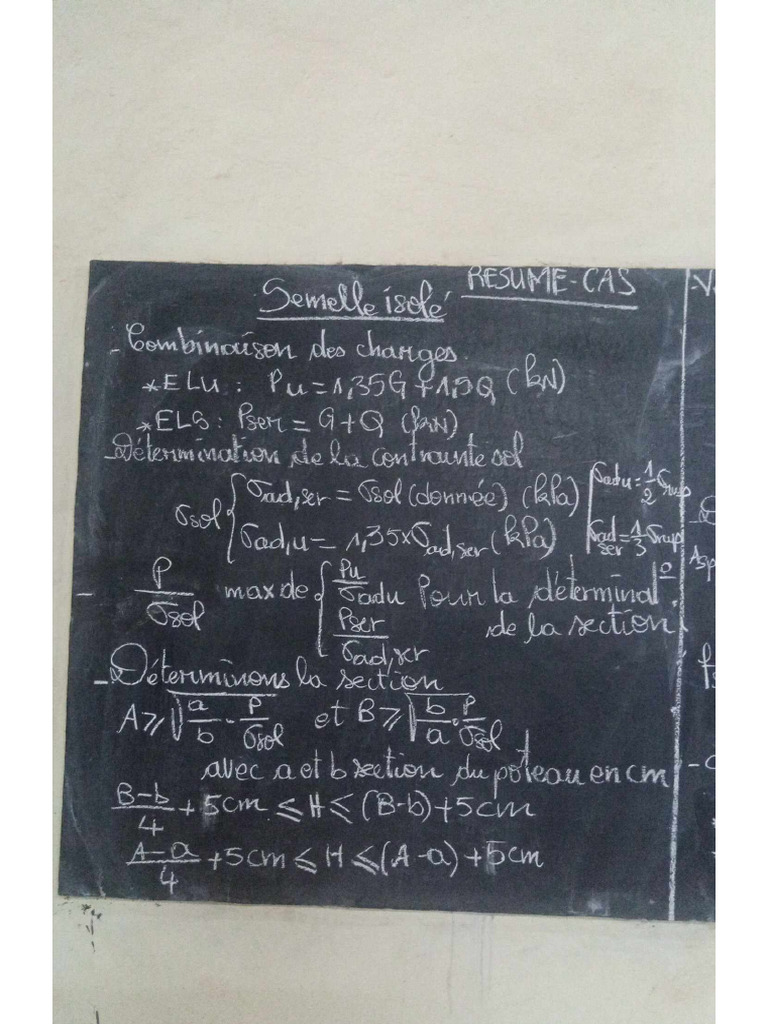 RESUME-CAS
Semelle isolé
- Combinaison des charges
* ELU : Pu = 1,35G + 1,5Q (kN)
* ELS : Pser = G + Q (kN)
- Détermination de la contrainte sol
σsol { σad,ser = σsol (donnée) (kPa) | σadu = 1/2 σrup
σad,u = 1,35 x σad,ser (kPa) | σad ser = 1/3 σrup
- P/σsol max de { Pu/σadu Pour la déterminat°
Pser/σad,ser de la section
- Déterminons la section
A ⩾ √(a/b · P/σsol) et B ⩾ √(b/a · P/σsol)
avec a et b section du poteau en cm
(B-b)/4 + 5cm ⩽ H ⩽ (B-b) + 5cm
(A-a)/4 + 5cm ⩽ H ⩽ (A-a) + 5cm